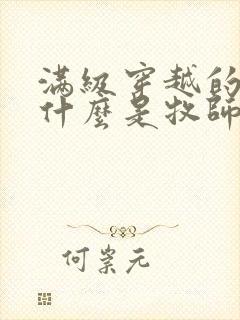 滿級穿越的
什麼是牧師
何棠元